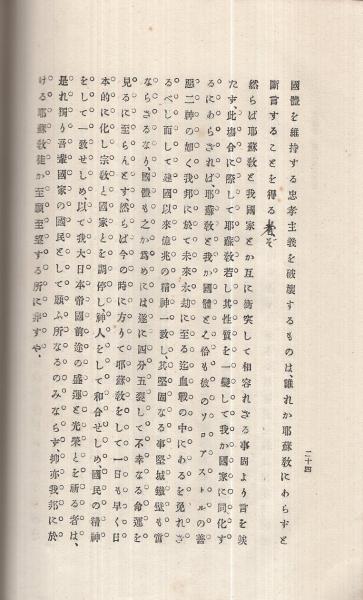 國體を維持する忠孝主義を破壞するものは、誰れか耶蘇敎にわらずと
斷言することを得る者そ
然らば耶蘇敎と我國家とか互に衝突して相容れざる事固より言を竢
たず、此塲合に際して耶蘇敎若し其性質を一變して我か國家に同化す
るにあらされば、耶蘇敎と我か國體と之恰も彼のゾロアストルの善
惡二神の如く我邦に於て未來永劫に至る迄血戰の中にあるを免れざ
るべし而して建國以來億兆の精神一致し、其堅固なる事堅城鐵壁も啻
ならざるなり、國體も之か爲めには遂に四分五裂して不幸なる命運を
見るに至らんとす、然らば今の時に方りて耶蘇敎をして一日も早く日
本的に化し宗敎と國家とを調停し神人をして和合せしめ、國民の精神
をして一致せしめ、以て我大日本帝國前途の盛運と光榮とを祈る者は、
是れ獨り吾輩國家の國民として願ふ所なるのみならす、抑亦我邦に於
ける耶蘇敎徒か至願至望する所に非すや、
二十四